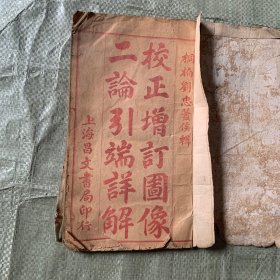 桐栢劉忠菴侯輯
校正增訂圖像
二論引端詳解
上海昌文書局印行